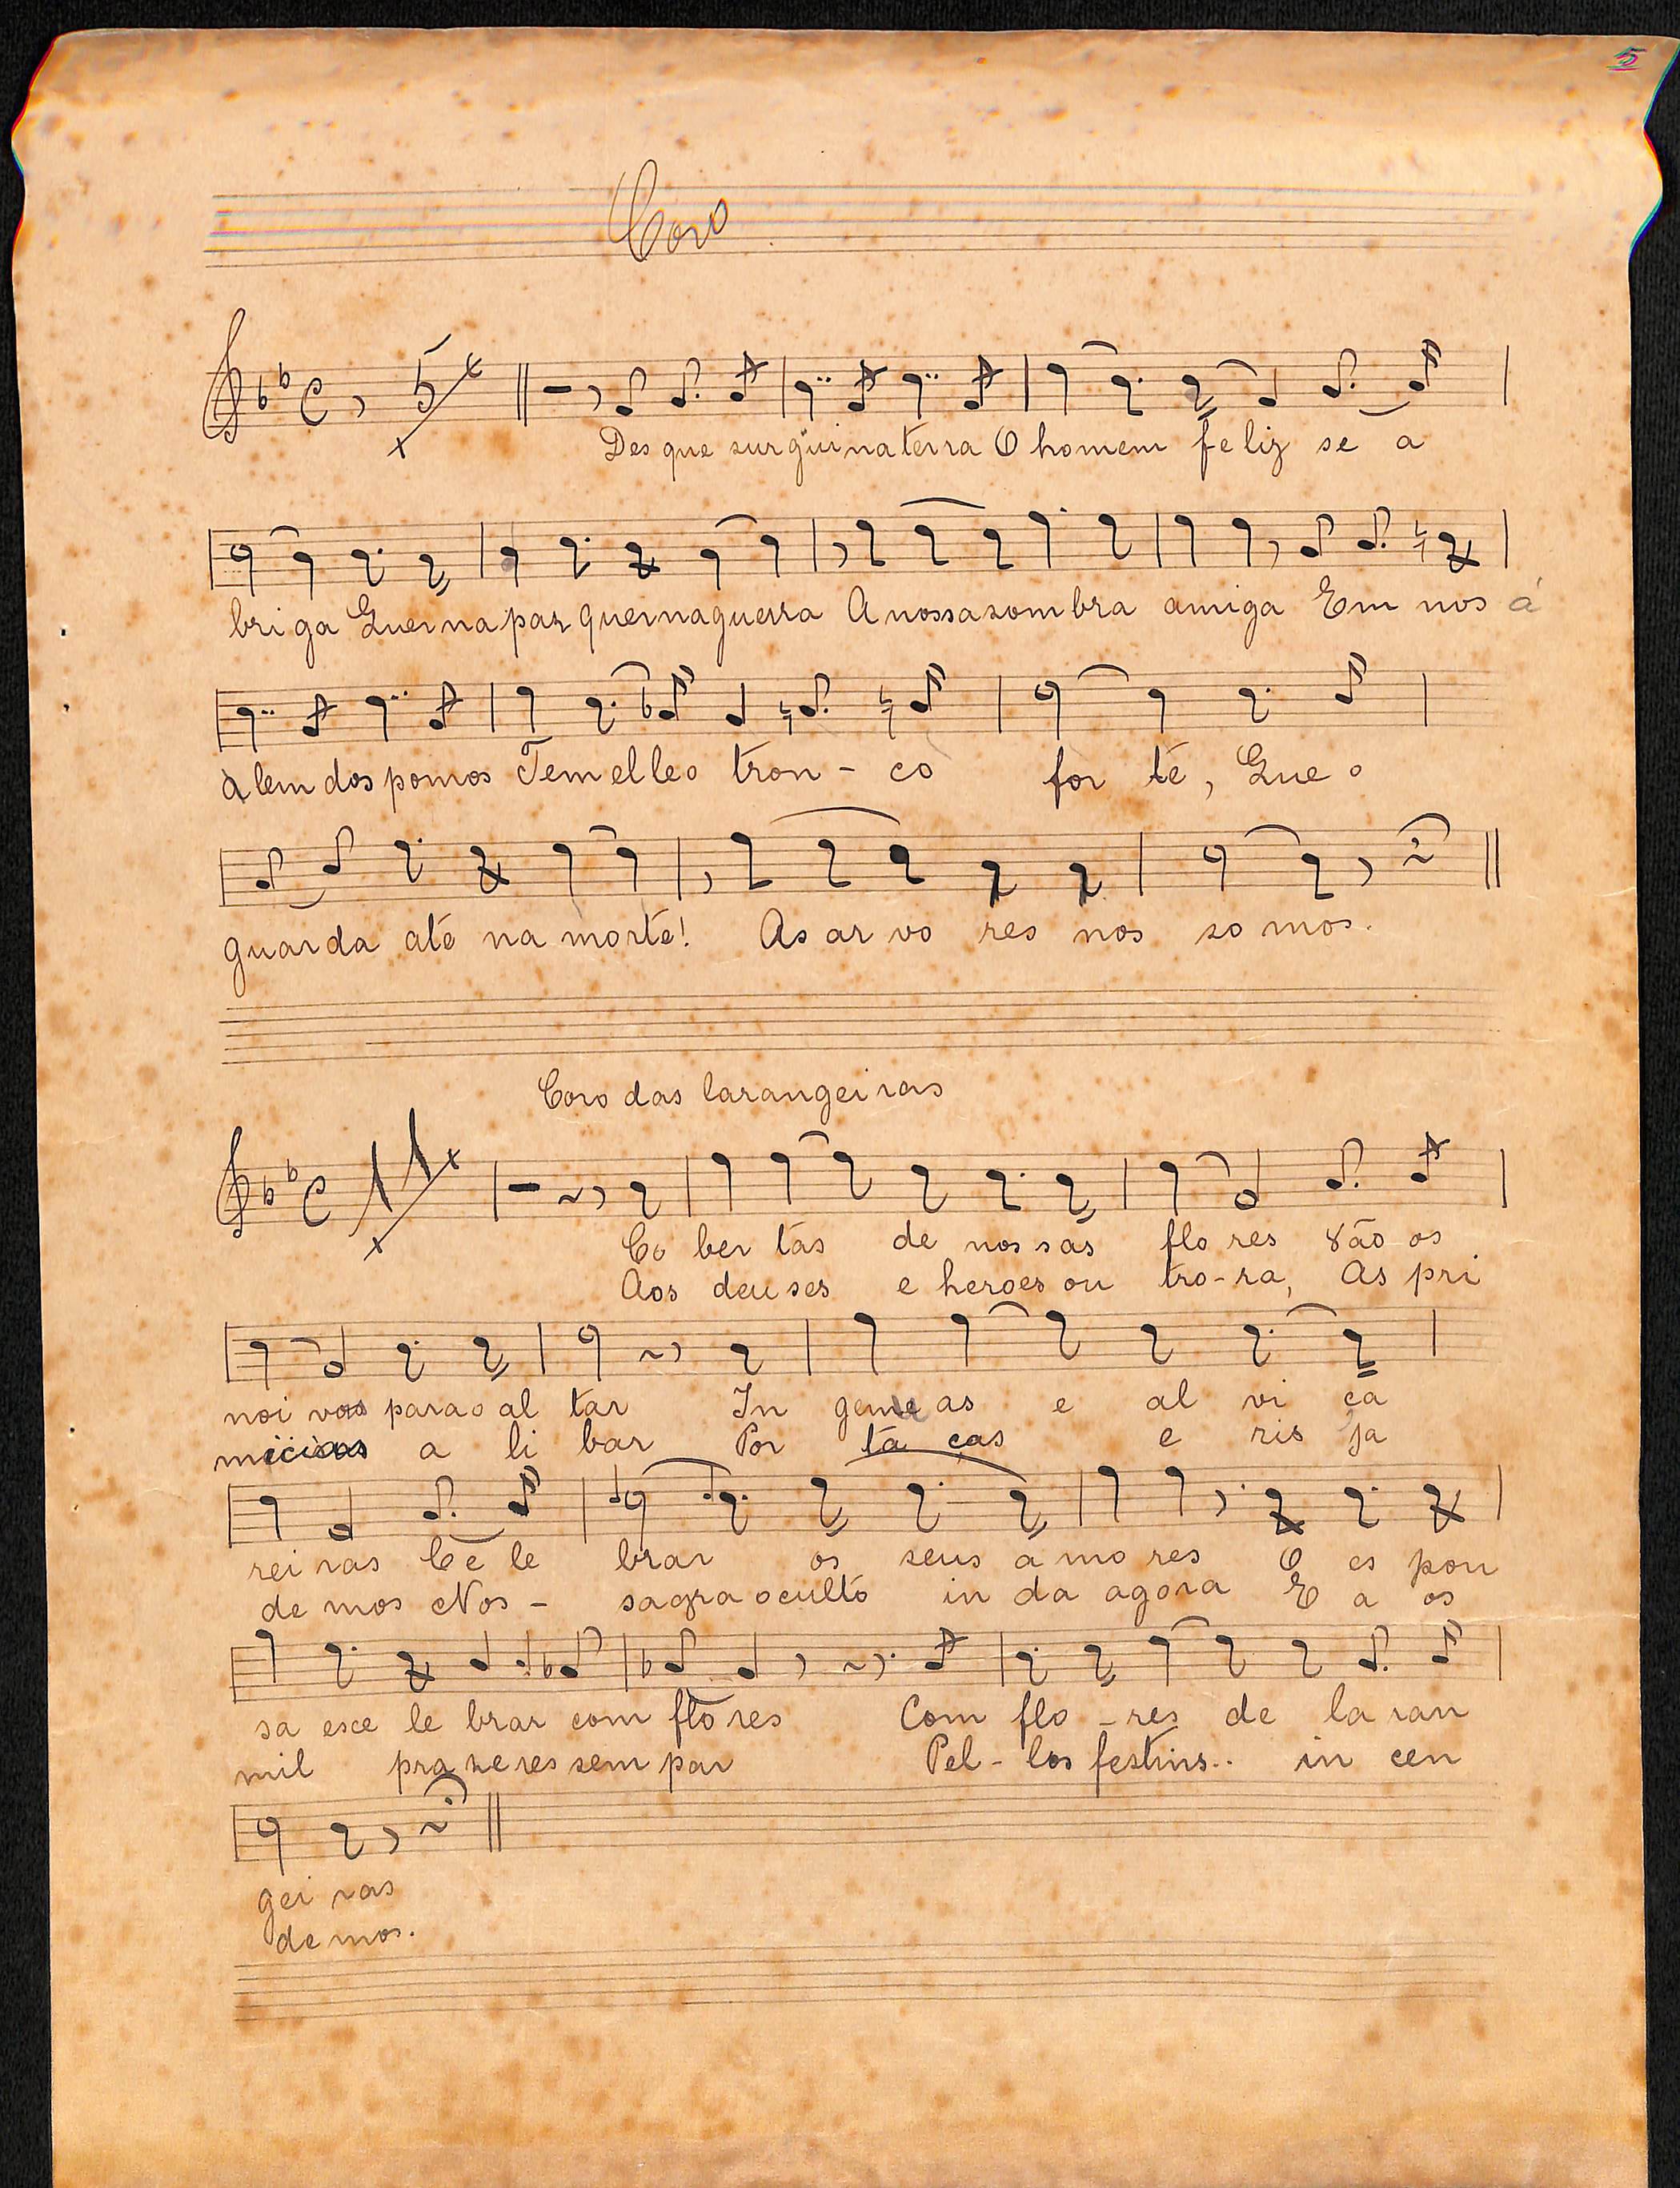 5
Coro
5
Des que surguina terra O homem feliz se a
briga Quer na paz quer na guerra A nossa sombra amiga Em nos á
alem dos pomos Tem elle o tron - co for te, Que o
guarda até na morte! As ar vo res nos so mos.
Coro das larangeiras
11
Co ber tas de nos sas flo res são os
Aos deu ses e heroes ou tro - ra, As pri
noi vos para o al tar In genuas e al vi ça
micias a li bar Por ta ças e ris ja
rei ras Ce le brar os seus a mo res O es pon
de mos Nos - sagra o culto in da agora E a os
sa es ce le brar com flo res Com flo - res de la ran
mil pra ze res sem par Pel - los festins.. in cen
gei ras
de mos.